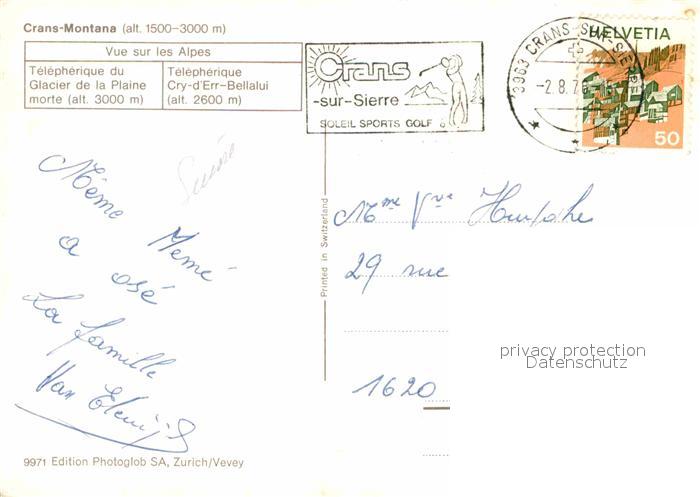 Crans-Montana (alt. 1500–3000 m)
Vue sur les Alpes
Téléphérique du
Glacier de la Plaine
morte (alt. 3000 m)
Téléphérique
Cry-d'Err–Bellalui
(alt. 2600 m)
Crans
-sur-Sierre
SOLEIL SPORTS GOLF
3963 CRANS-SUR-SIERRE
-2.8.7
HELVETIA
50
Suisse
Même Memé
a osé
La famille
Van
Printed in Switzerland
Mme Vve
29 rue
1620
privacy protection
Datenschutz
9971 Edition Photoglob SA, Zurich/Vevey